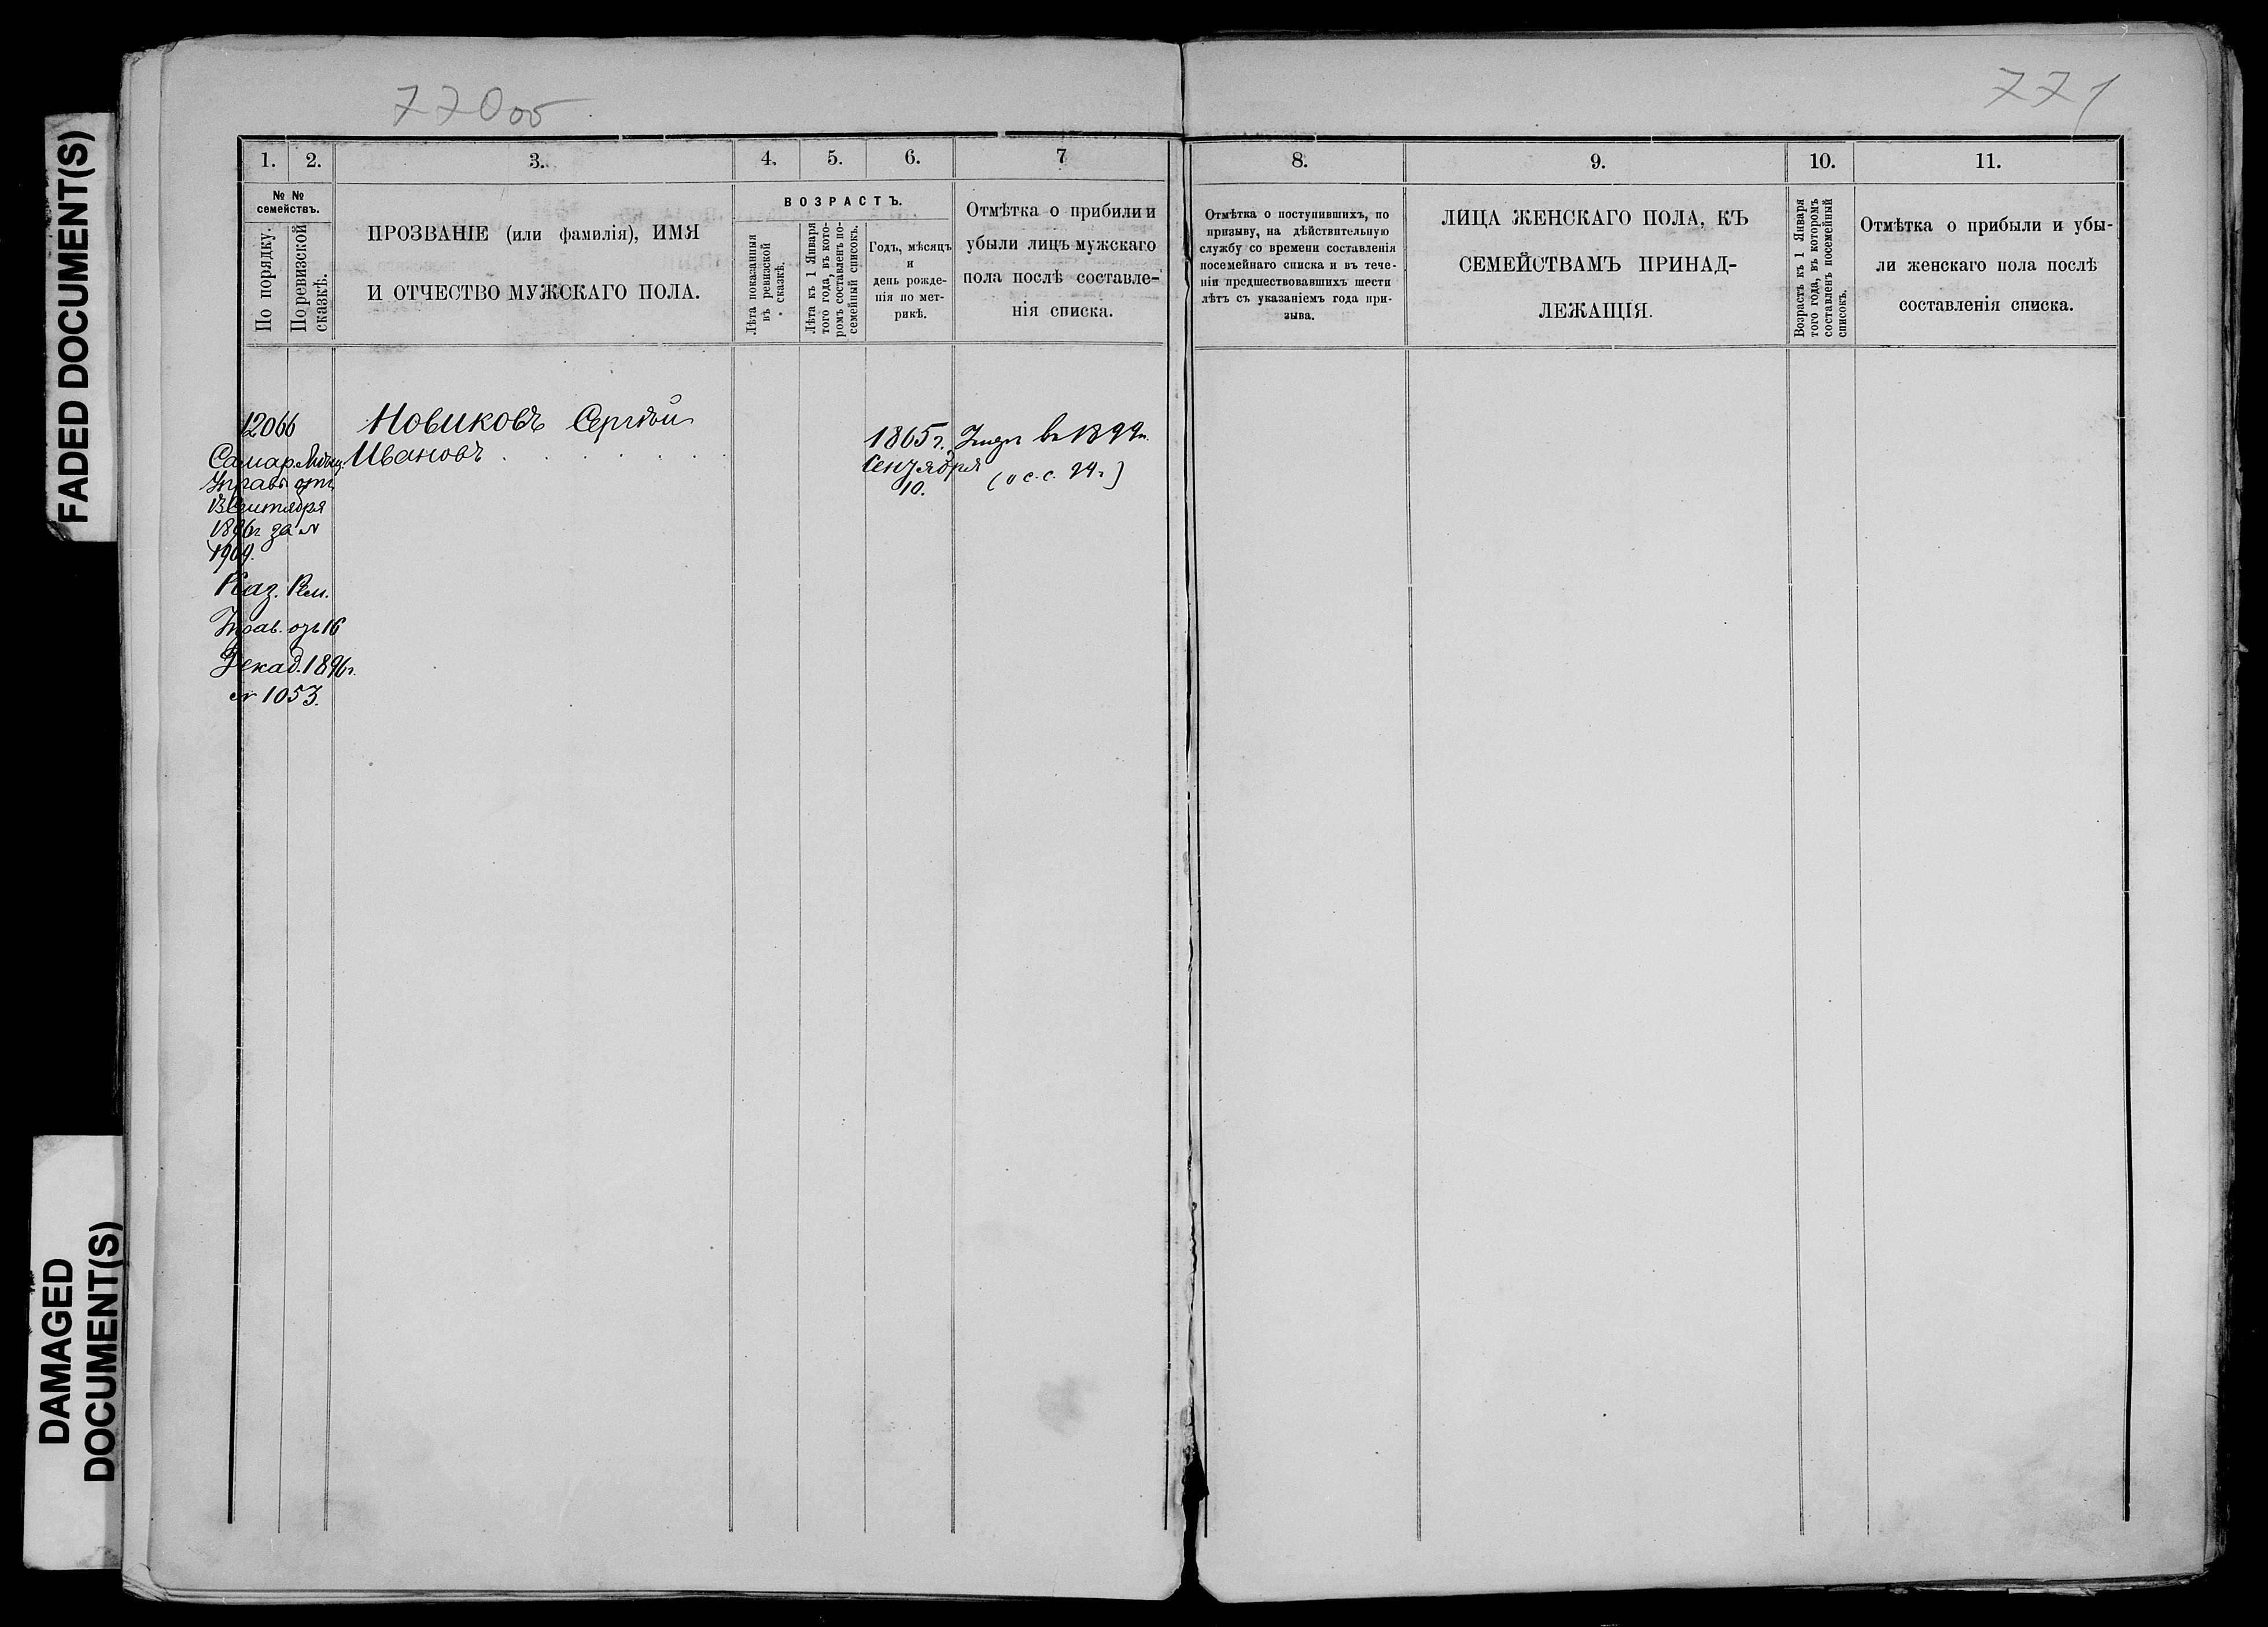 FADED DOCUMENT(S)
DAMAGED
DOCUMENT(S)
770об
771
1. 2. 3. 4. 5. 6. 7
№ №
семействъ.
По порядку.
По ревизской
сказкѣ.
ПРОЗВАНІЕ (или фамилія), ИМЯ
И ОТЧЕСТВО МУЖСКАГО ПОЛА.
ВОЗРАСТЪ.
Лѣта показанныя
въ ревизской
сказкѣ.
Лѣта къ 1 Января
того года, въ кото-
ромъ составленъ по-
семейный списокъ.
Годъ, мѣсяцъ
и
день рожде-
нія по мет-
рикѣ.
Отмѣтка о прибыли и
убыли лицъ мужскаго
пола послѣ составле-
нія списка.
8. 9. 10. 11.
Отмѣтка о поступившихъ, по
призыву, на дѣйствительную
службу со времени составленія
посемейнаго списка и въ тече-
ніи предшествовавшихъ шести
лѣтъ съ указаніемъ года при-
зыва.
ЛИЦА ЖЕНСКАГО ПОЛА, КЪ
СЕМЕЙСТВАМЪ ПРИНАД-
ЛЕЖАЩІЯ.
Возрастъ къ 1 Января
того года, въ которомъ
составленъ посемейный
списокъ.
Отмѣтка о прибыли и убы-
ли женскаго пола послѣ
составленія списка.
12066
Новиковъ Сергѣй
Ивановъ
1865 г.
Сентября
10.
въ 1899 г.
Самар.
Управы отъ
13 Сентября
1896 г за №
1904.
Каз. Рем.
Управ. отъ 16
Декаб. 1896 г.
№ 1053.